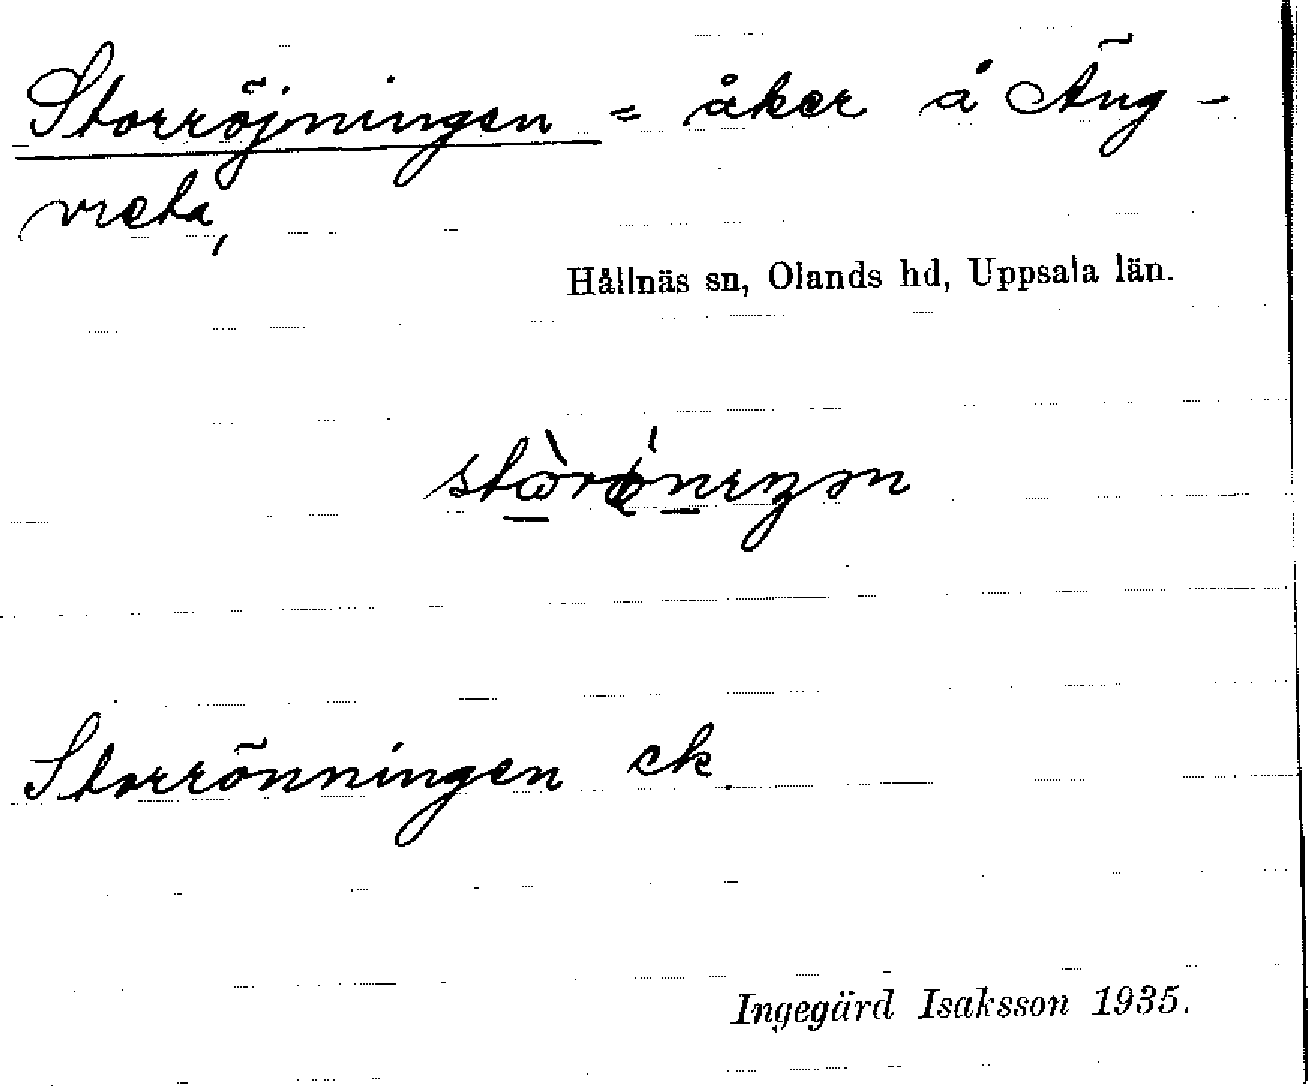 Storröjningen = åker å Äng-
vreta,
Hållnäs sn, Olands hd, Uppsala län.
Storrönningen ek.
Ingegärd Isaksson 1935.